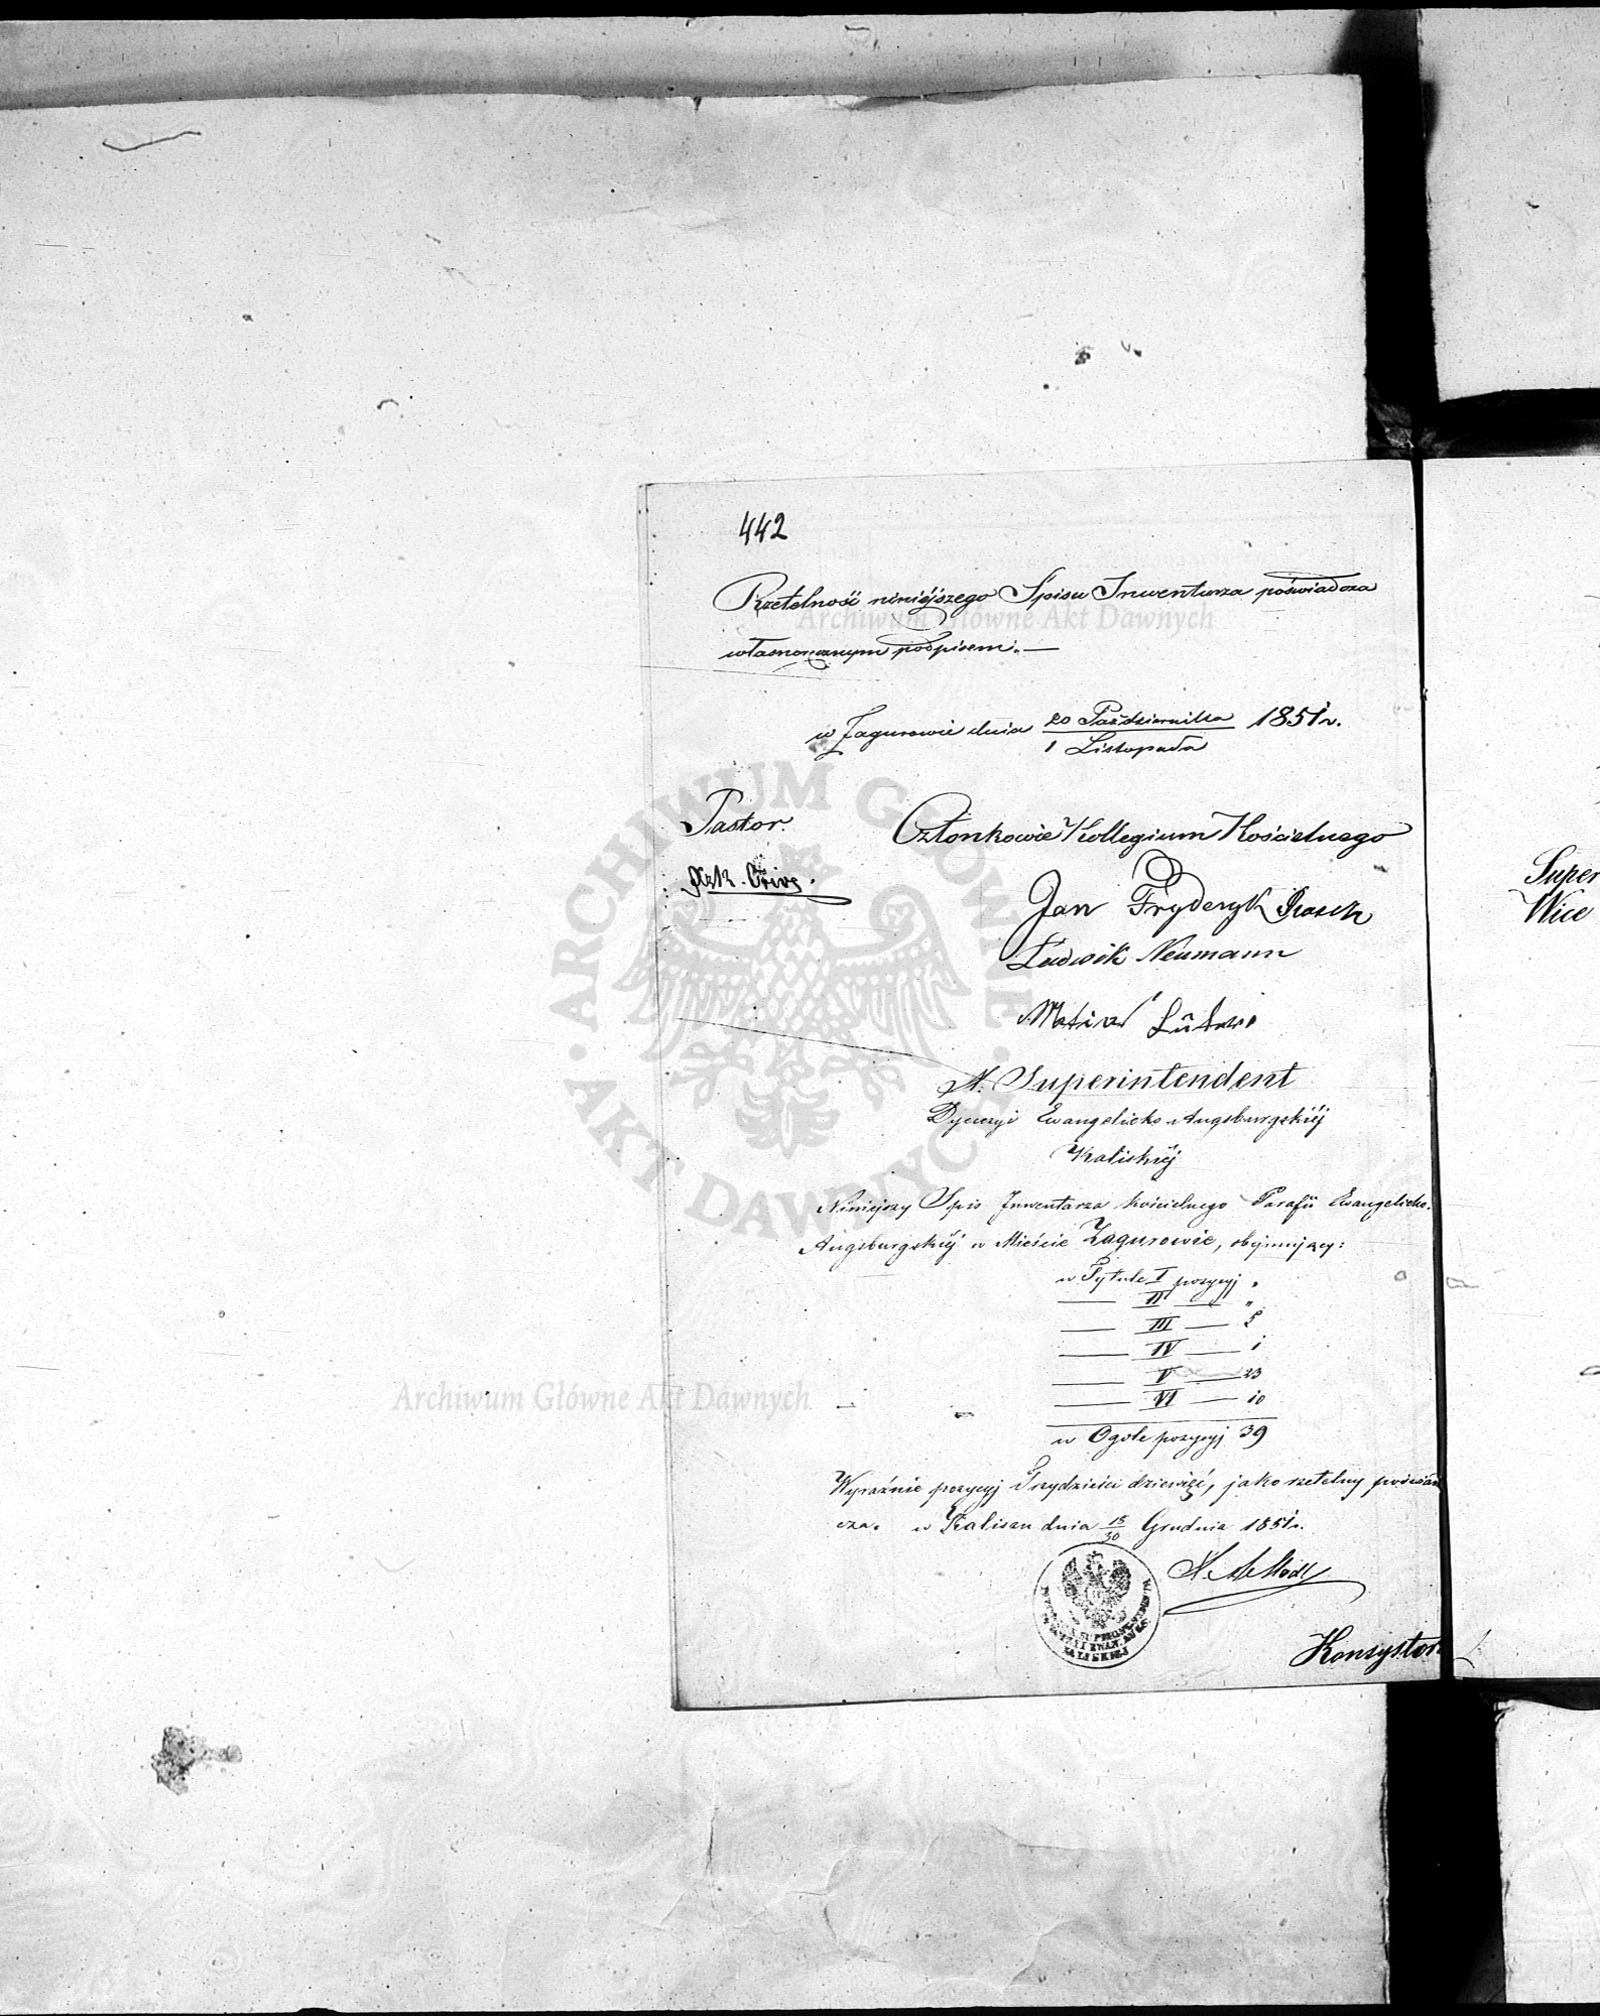 442
Rzetelność niniejszego Spisu Inwentarza poświadcza
własnoręcznym podpisem.—
w Zagurowie dnia 20 Października / 1 Listopada 1851 r.
Pastor.
Członkowie Kollegium Kościelnego
Jan Fryderyk
Ludwik Neumann
N. Superintendent
Dyecezyi Ewangelicko Augsburgskiéj
Kaliskiéj
Niniejszy Spis Inwentarza kościelnego Parafii Ewangelicko-
Augsburgskiéj w Mieście Zagurowie, obejmujący:
w Tytule I pozycyj "
— II — "
— III — 5
— IV — 1
— V — 23
— VI — 10
w Ogóle pozycyj 39
Wyraźnie pozycyj Trzydzieści dziewięć, jako rzetelny poświad
cza. w Kaliszu dnia 18/30 Grudnia 1851 r.
Konsystor
Super
Wice
ARCHIWUM GŁÓWNE AKT DAWNYCH
Archiwum Główne Akt Dawnych
Archiwum Główne Akt Dawnych